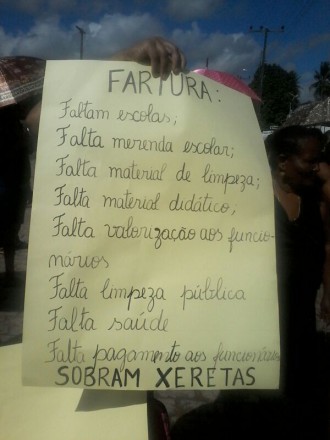 FARTURA:
Faltam escolas;
Falta merenda escolar;
Falta material de limpeza;
Falta material didático;
Falta valorização aos funcio-
nários
Falta limpeza pública
Falta saúde
Falta pagamento aos funcionários
SOBRAM XERETAS